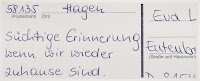 58135 Hagen
(Postleitzahl) (Ort)
Süchtige Erinnerung
wenn wir wieder
zuhause sind.
Eva L
(Straße und Hausnummer)